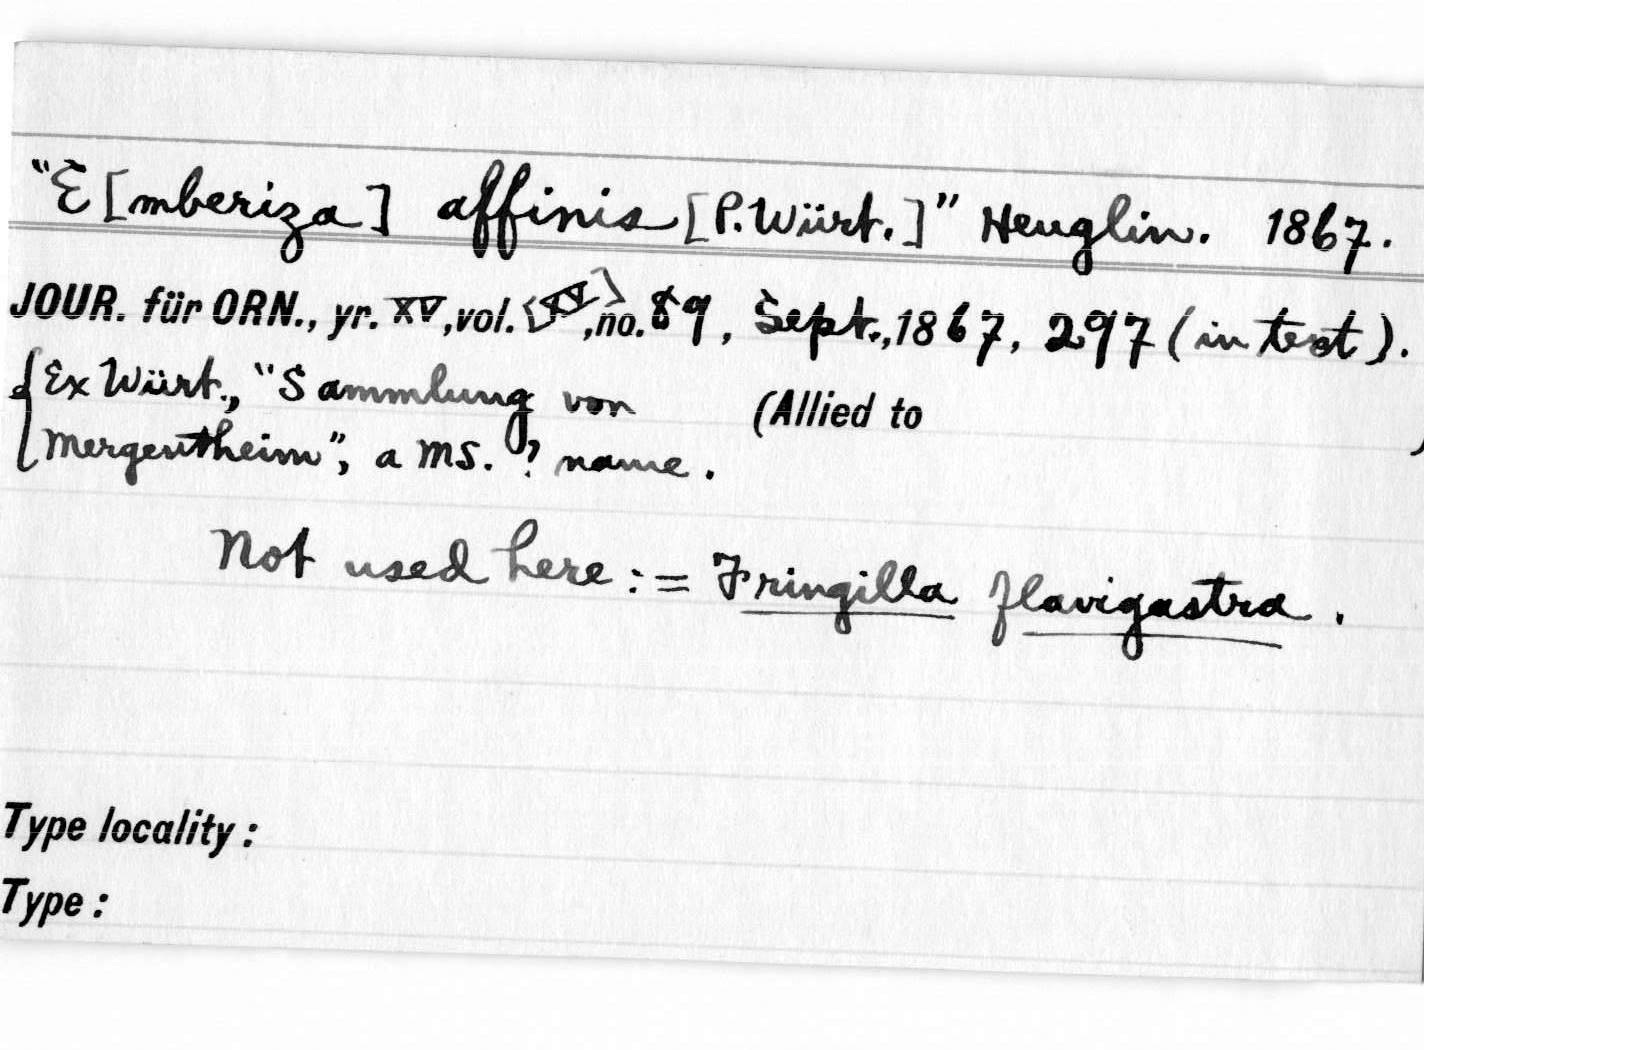 "E[mberiza] affinis [P. Würt.]" Heuglin. 1867.
JOUR. für ORN., yr. XV, vol. <XV>, no. 89, Sept., 1867, 297 (in text).
{Ex Würt., "Sammlung von (Allied to )
Mergentheim", a MS. ? name.
Not used here: = Fringilla flavigastra.
Type locality:
Type: